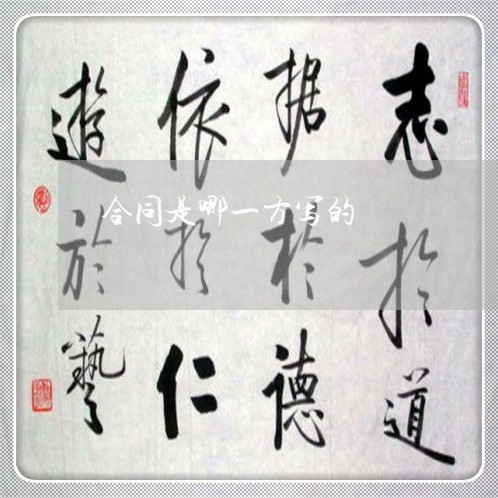 志於道
据於德
依於仁
遊於藝
合同是哪一方写的